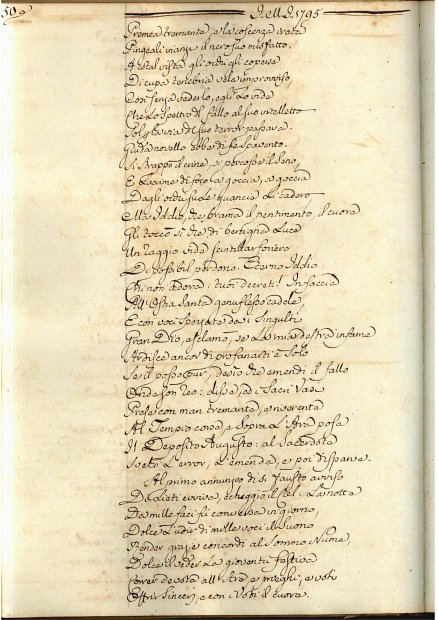 50
D. M. D. 1795
Fremea tremante, e la coscenza irata
Pingeali innanzi il nero suo misfatto.
A stal vista gli occhi gli coperse
Di cupa tenebria vel improvviso,
Così senza vederlo, egli lo vide
Che lo spettro del fallo al suo intelletto
Sol per la via di suo terror passava.
Guida novello ebbe di se spavento.
Si strappò il crine, si percosse il seno,
E lacrime di foco a goccia, a goccia
Dagli occhi su le guancie li cadero
Ma Iddio, che brama il pentimento, il cuore
Gli toccò sì che di benigna luce
Un raggio vide scintillar foriero
Di possibil perdono. Eterno Iddio
Chi non adora i tuoi decreti! In faccia
All' Ostia Santa genuflesso cade,
E con voci spezzate da i singulti
Gran Dio, esclamò, se la mia destra infame
Ardisce ancor di profanarti è solo
Se il posso pur, desio che emendi il fallo
Ond'io son reo: disse, ed i Sacri Vasi
Prese con man tremante, e riverente
Al Tempio corse, e sopra l'Ara posa
Il Deposito Augusto: al Sacerdote
Svelò l'error, l'emenda, e poi disparve.
Al primo annunzio di sì fausto avviso
Da lieti evviva, echeggiò il Ciel: la notte
Da mille faci fu conversa in giorno,
Dolce l'udir di mille voci il suono
Render grazie concordi al Sommo Nume,
Dolce il veder la gioventù festiva
Correr devota all'Ara e preghi, e voti
Offrir sinceri, e con i Voti il cuore.